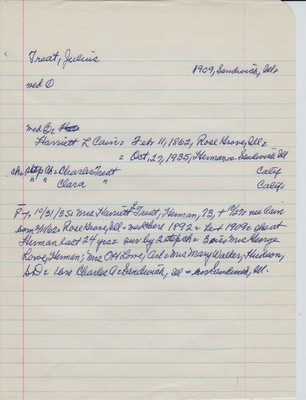 Treat, Julius
1909, Sandwich, Ill=
med D
med Dr
Harriett L Cain= Feb 11, 1862, Rose Grove, Ill=
= Oct, 27, 1935, Herman= Sandwich Ill
ch= step Ch= Charles Treat Calif
" " Clara " Calif=
P+, 10/31/35= Mrs Harriett L Treat, Herman, 73, + 10/27= nee Cain
born 2/11/62= Rose Grove, Ill= here 1892= 1909= at
Herman last 24 yrs= sur by 2 step ch= 3 sis= Mrs George
Lowe, Herman; Mrs OH Lowe, Mrs Mary Walker, Hudson,
S.D= 1 bro Charles A= Sandwich, Ill = Sandwich, Ill.